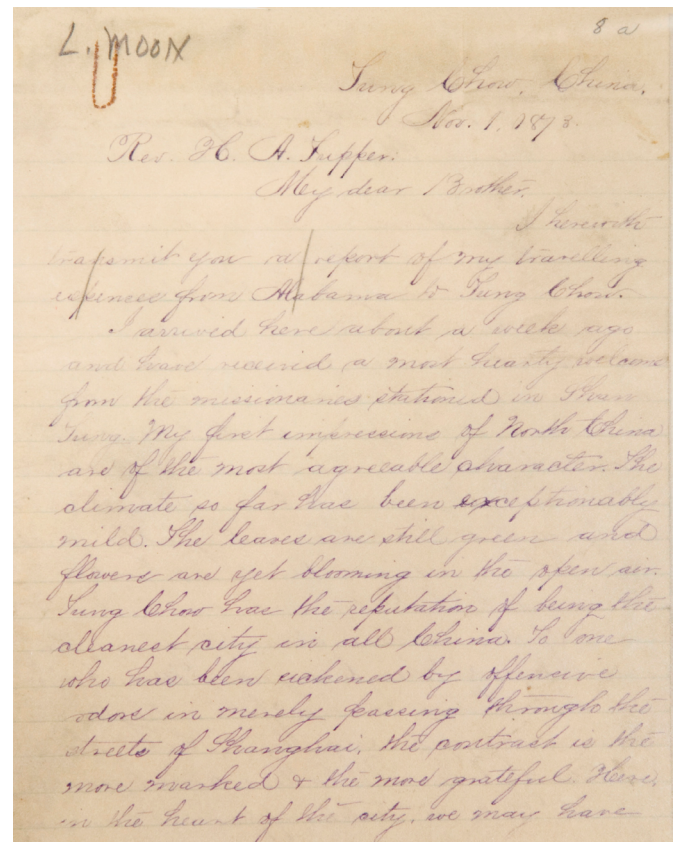 L. MOON
8 a
Tung Chow, China.
Nov. 1, 1873.
Rev. H. A. Tupper:
My dear Brother,
I herewith
transmit you a report of my travelling
expenses from Alabama to Tung Chow.
I arrived here about a week ago
and have received a most hearty welcome
from the missionaries stationed in Shan
Tung. My first impressions of North China
are of the most agreeable character. The
climate so far has been exceptionably
mild. The leaves are still green and
flowers are yet blooming in the open air.
Tung Chow has the reputation of being the
cleanest city in all China. To one
who has been sickened by offensive
odors in merely passing through the
streets of Shanghai, the contrast is the
more marked & the more grateful. Here,
in the heart of the city, we may have